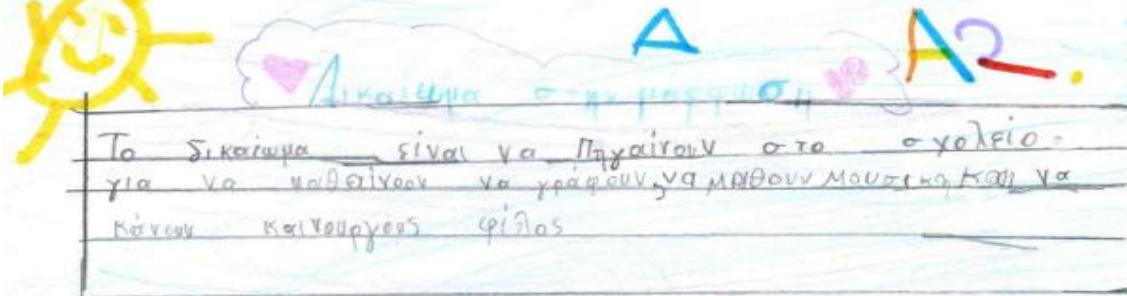 Δ Α2.
Δικαίωμα στην μόρφωση
Το δικαίωμα είναι να πηγαίνουν στο σχολείο.
για να μαθαίνουν να γράφουν, να μάθουν μουσικη και να
κάνουν καινουργιους φίλος